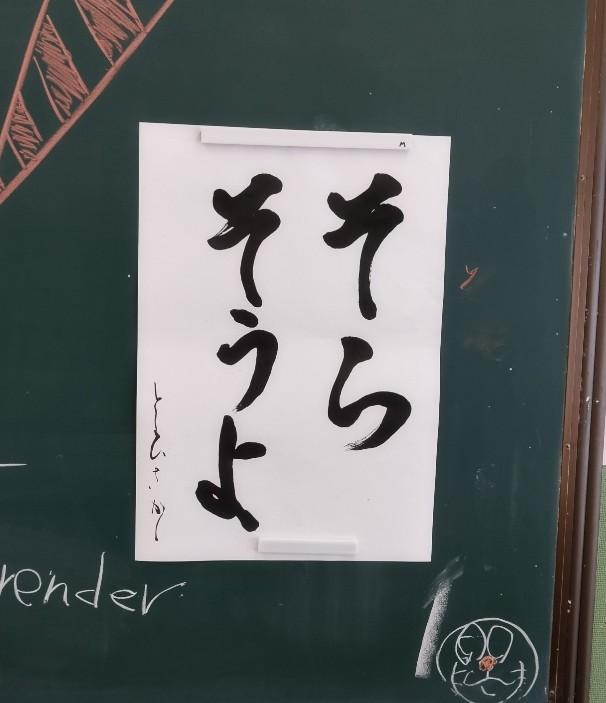 そら
そうよ
としひさかく
render